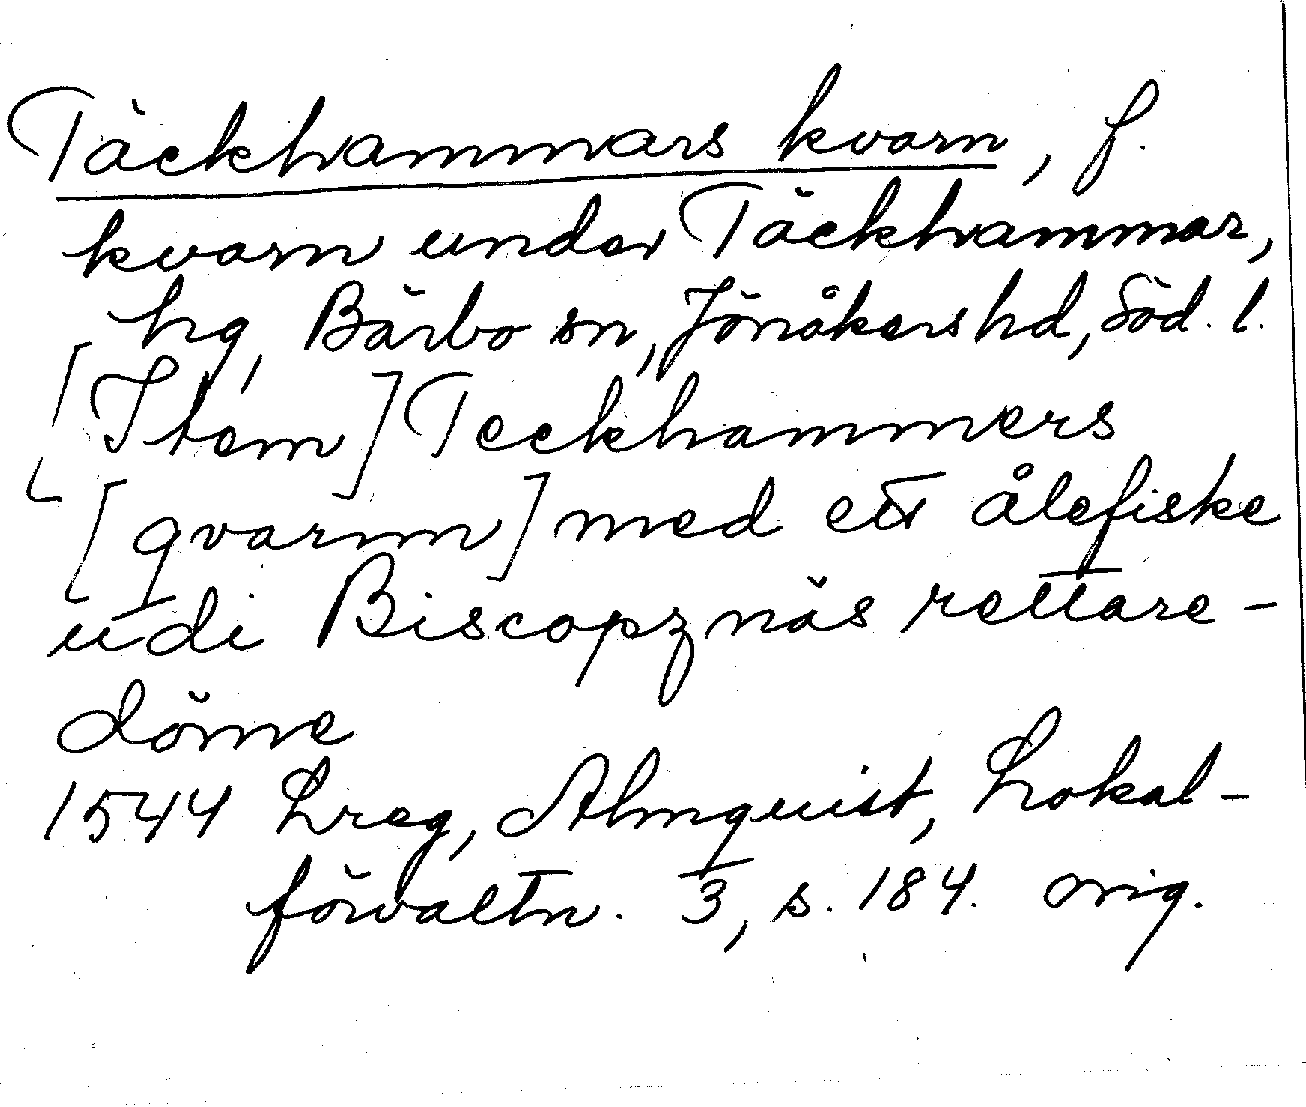 Täckhammars kvarn, f.
kvarn under Täckhammar,
hg, Bärbo sn, Jönåkers hd, Söd. l.
[Item] Teckhammers
[qvarnn] med ett ålefiske
udi Biscopznäs rettare-
döme
1544 Lreg, Almquist, Lokal-
förvaltn. 3, s. 184. orig.